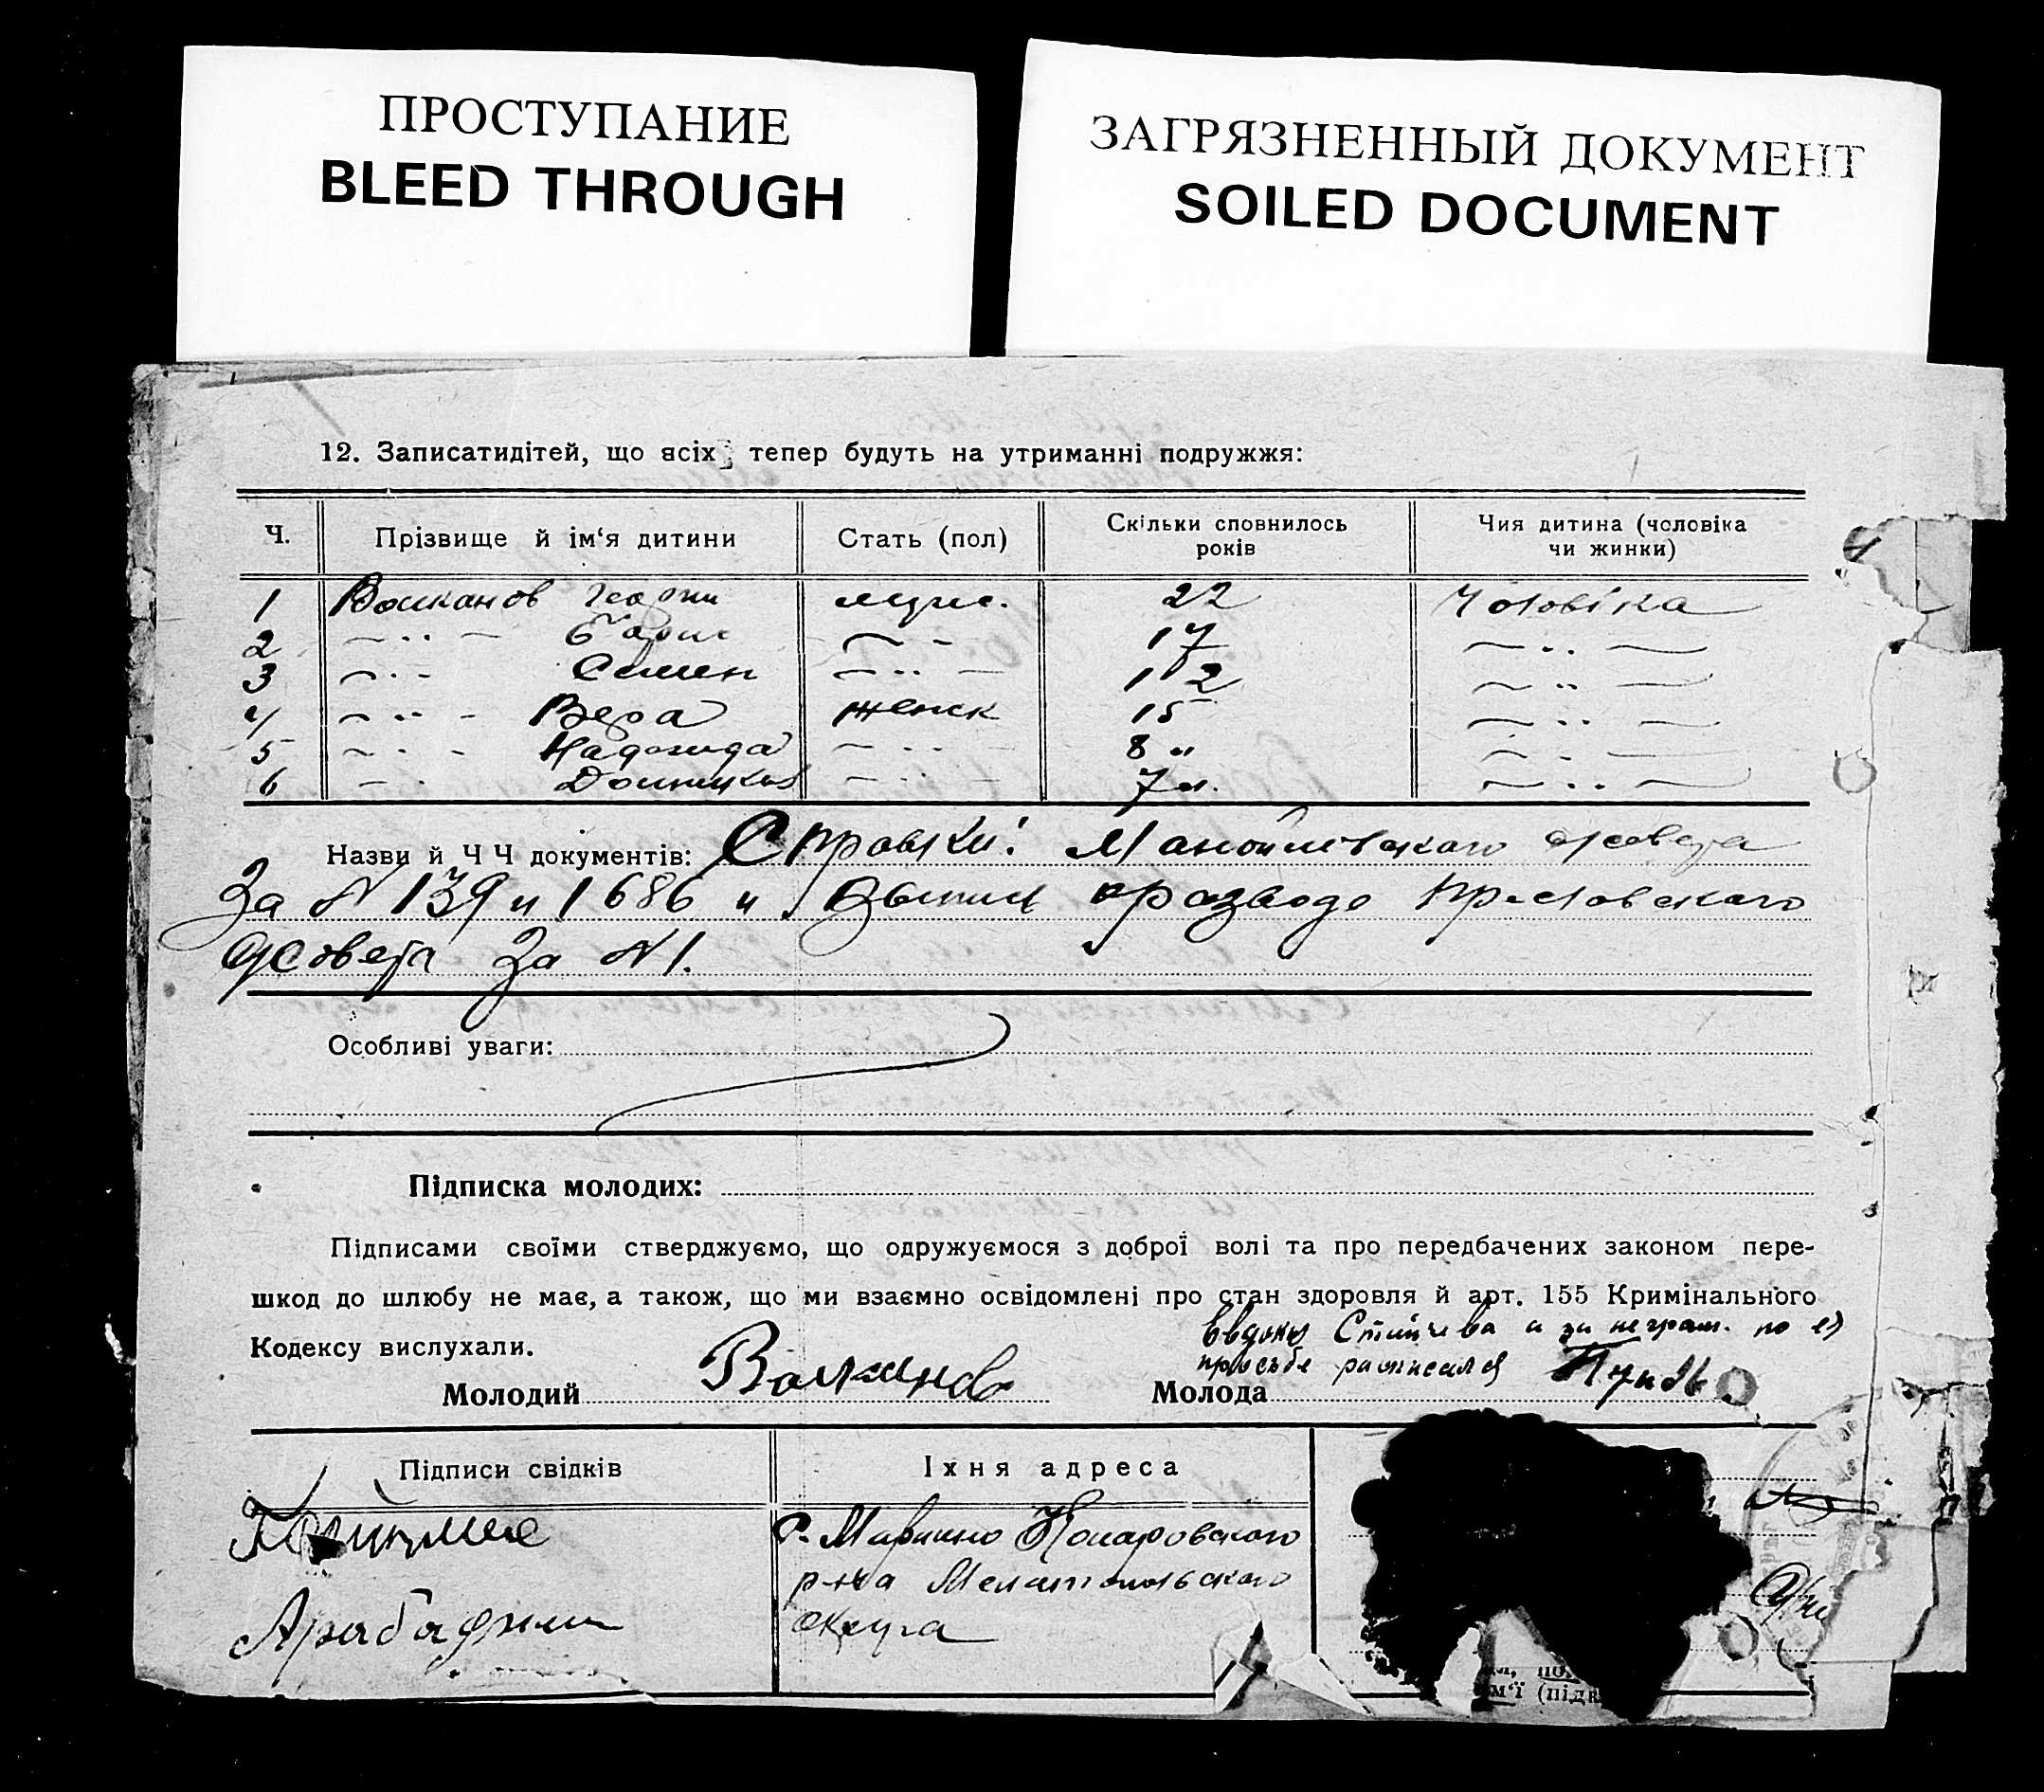 ПРОСТУПАНИЕ
BLEED THROUGH
ЗАГРЯЗНЕННЫЙ ДОКУМЕНТ
SOILED DOCUMENT
12. Записатидітей, що всіх тепер будуть на утриманні подружжя:
Ч. Прізвище й ім‘я дитини Стать (пол) Скільки сповнилось років Чия дитина (чсловіка чи жинки)
1 Волканов Георги муж. 22 Чоловіка
2 — ·· — 17 — ·· —
3 — ·· — Семен — ·· — 12 — ·· —
4 — ·· — Вера женск 15 — ·· —
5 — ·· — Надежда — ·· — 8 „ — ·· —
6 — ·· — — ·· — 7 „ — ·· —
Назви й Ч Ч документів: Справки: Манойловского
За № 139 и 1686 и о разводе
За № 1.
Особливі уваги:
Підписка молодих:
Підписами своїми стверджуємо, що одружуємося з доброї волі та про передбачених законом пере-
шкод до шлюбу не має, а також, що ми взаємно освідомлені про стан здоровля й арт. 155 Кримінального
Кодексу вислухали.
а за неграм. по её
просьбе расписался
Молодий Волканов Молода
Підписи свідків Їхня адреса
с. Марьино
р-на Мелитопольского
Арабаджи округа
м‘ї (підв